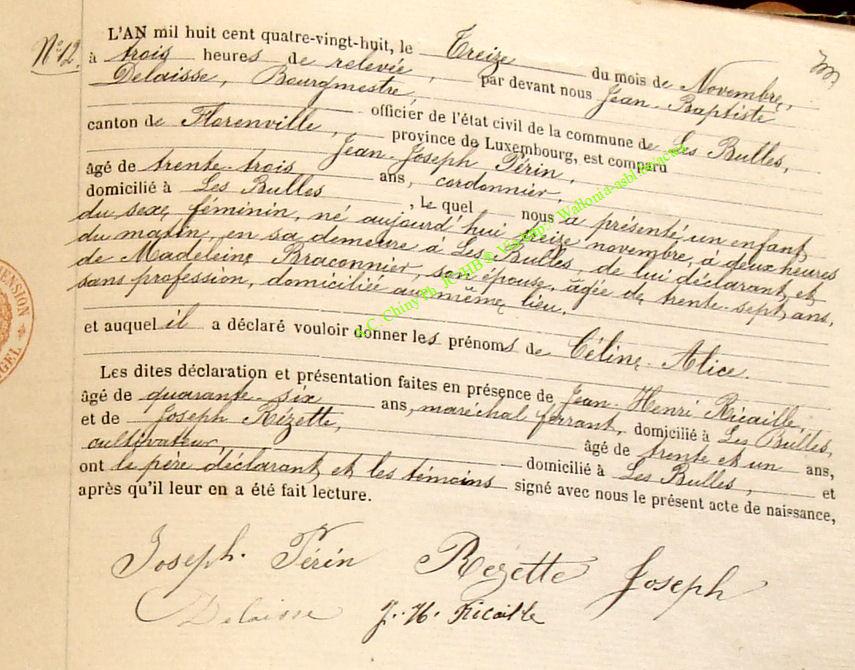 N° 12.
L'AN mil huit cent quatre-vingt-huit, le Treize du mois de Novembre,
à trois heures de relevée, par devant nous Jean-Baptiste
Delaisse, Bourgmestre,
officier de l'état civil de la commune de Les Bulles,
canton de Florenville, province de Luxembourg, est comparu
Jean-Joseph Périn,
âgé de trente-trois ans, cordonnier,
domicilié à Les Bulles, lequel nous a présenté un enfant
du sexe féminin, né aujourd'hui treize novembre, à deux heures
du matin, en sa demeure à Les Bulles, de lui déclarant et
de Madeleine Braconnier, son épouse, âgée de trente-sept ans,
sans profession, domiciliée au même lieu.
et auquel il a déclaré vouloir donner les prénoms de Céline-Alice.
Les dites déclaration et présentation faites en présence de Jean-Henri Ricaille,
âgé de quarante-six ans, maréchal ferrant, domicilié à Les Bulles,
et de Joseph Rézette, âgé de trente et un ans,
cultivateur, domicilié à Les Bulles, et
ont le père déclarant et les témoins signé avec nous le présent acte de naissance,
après qu'il leur en a été fait lecture.
Joseph. Périn Rézette Joseph
Delaisse J.-H. Ricaille